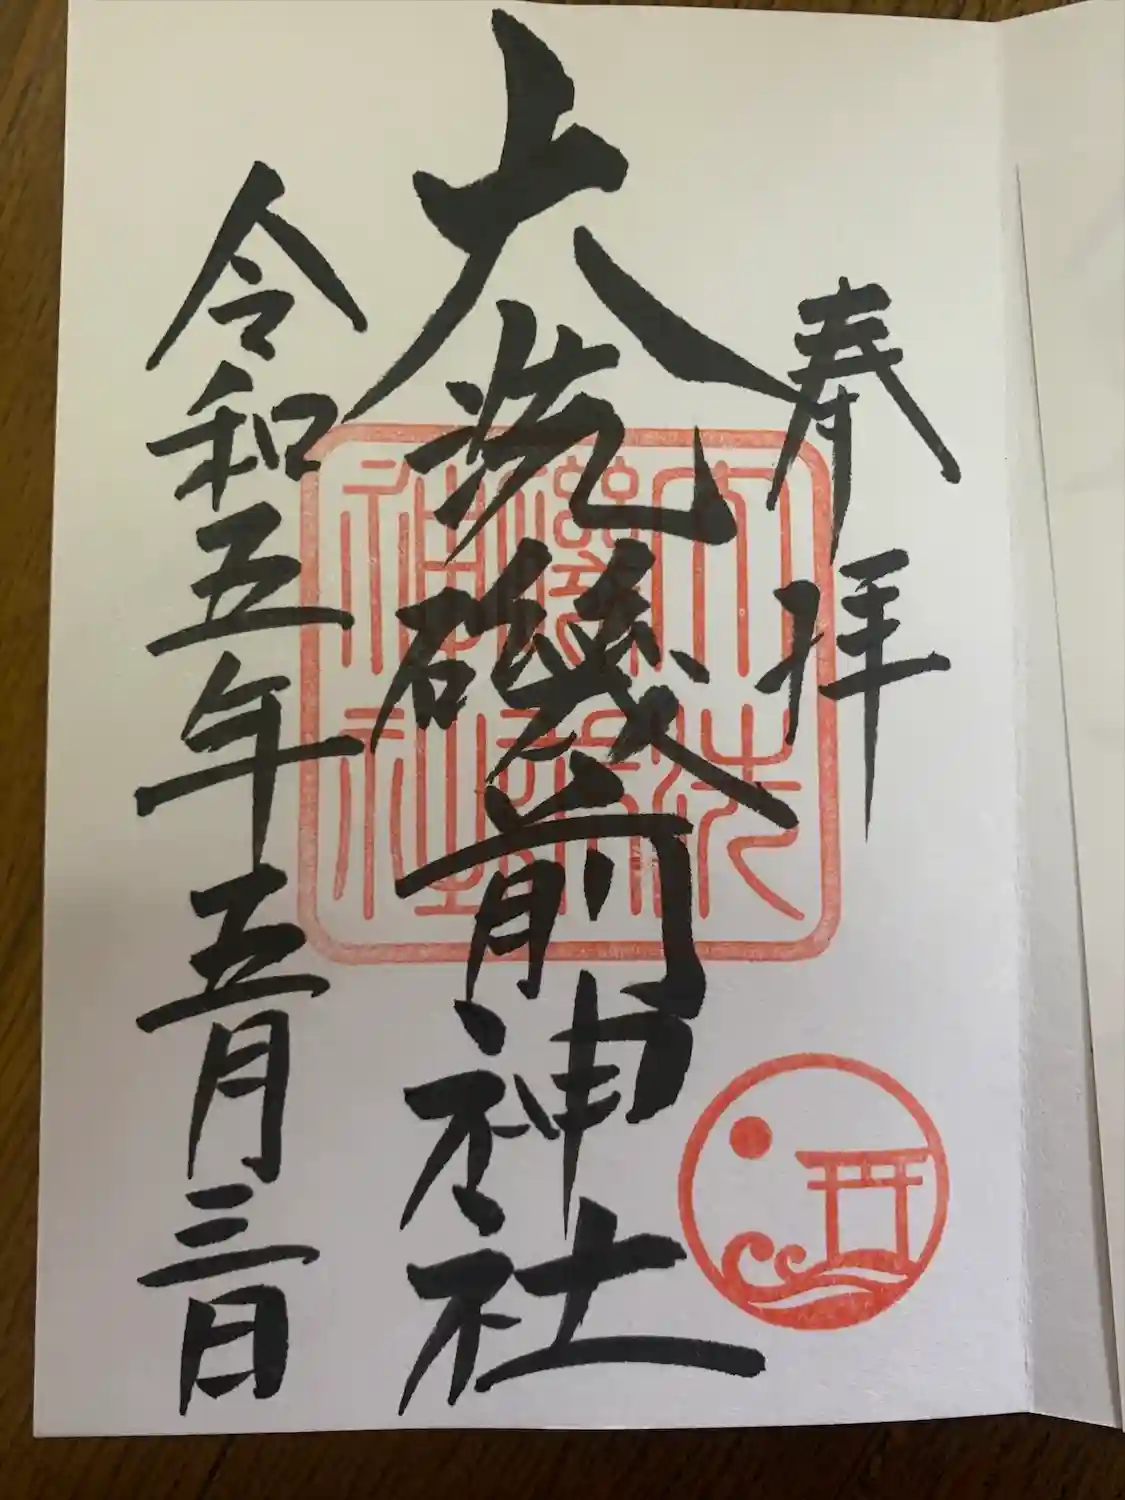 奉拝
大洗磯前神社
大洗
磯前
神社
令和五年五月三日